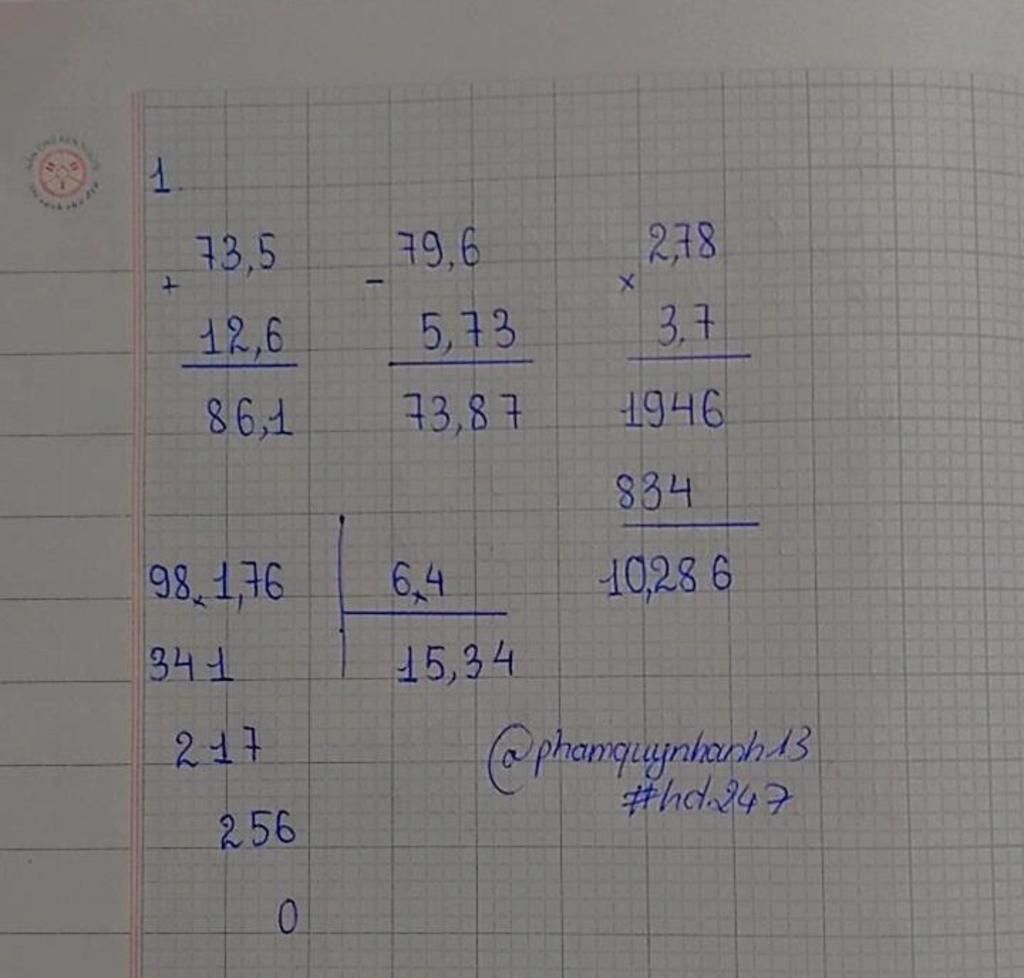 1.
73,5
+
12,6
86,1
79,6
-
5,73
73,87
2,78
x
3,7
1946
834
10,286
98,1,76 6,4
341 15,34
217
256
0
@phamquynhanh13
#hd.247